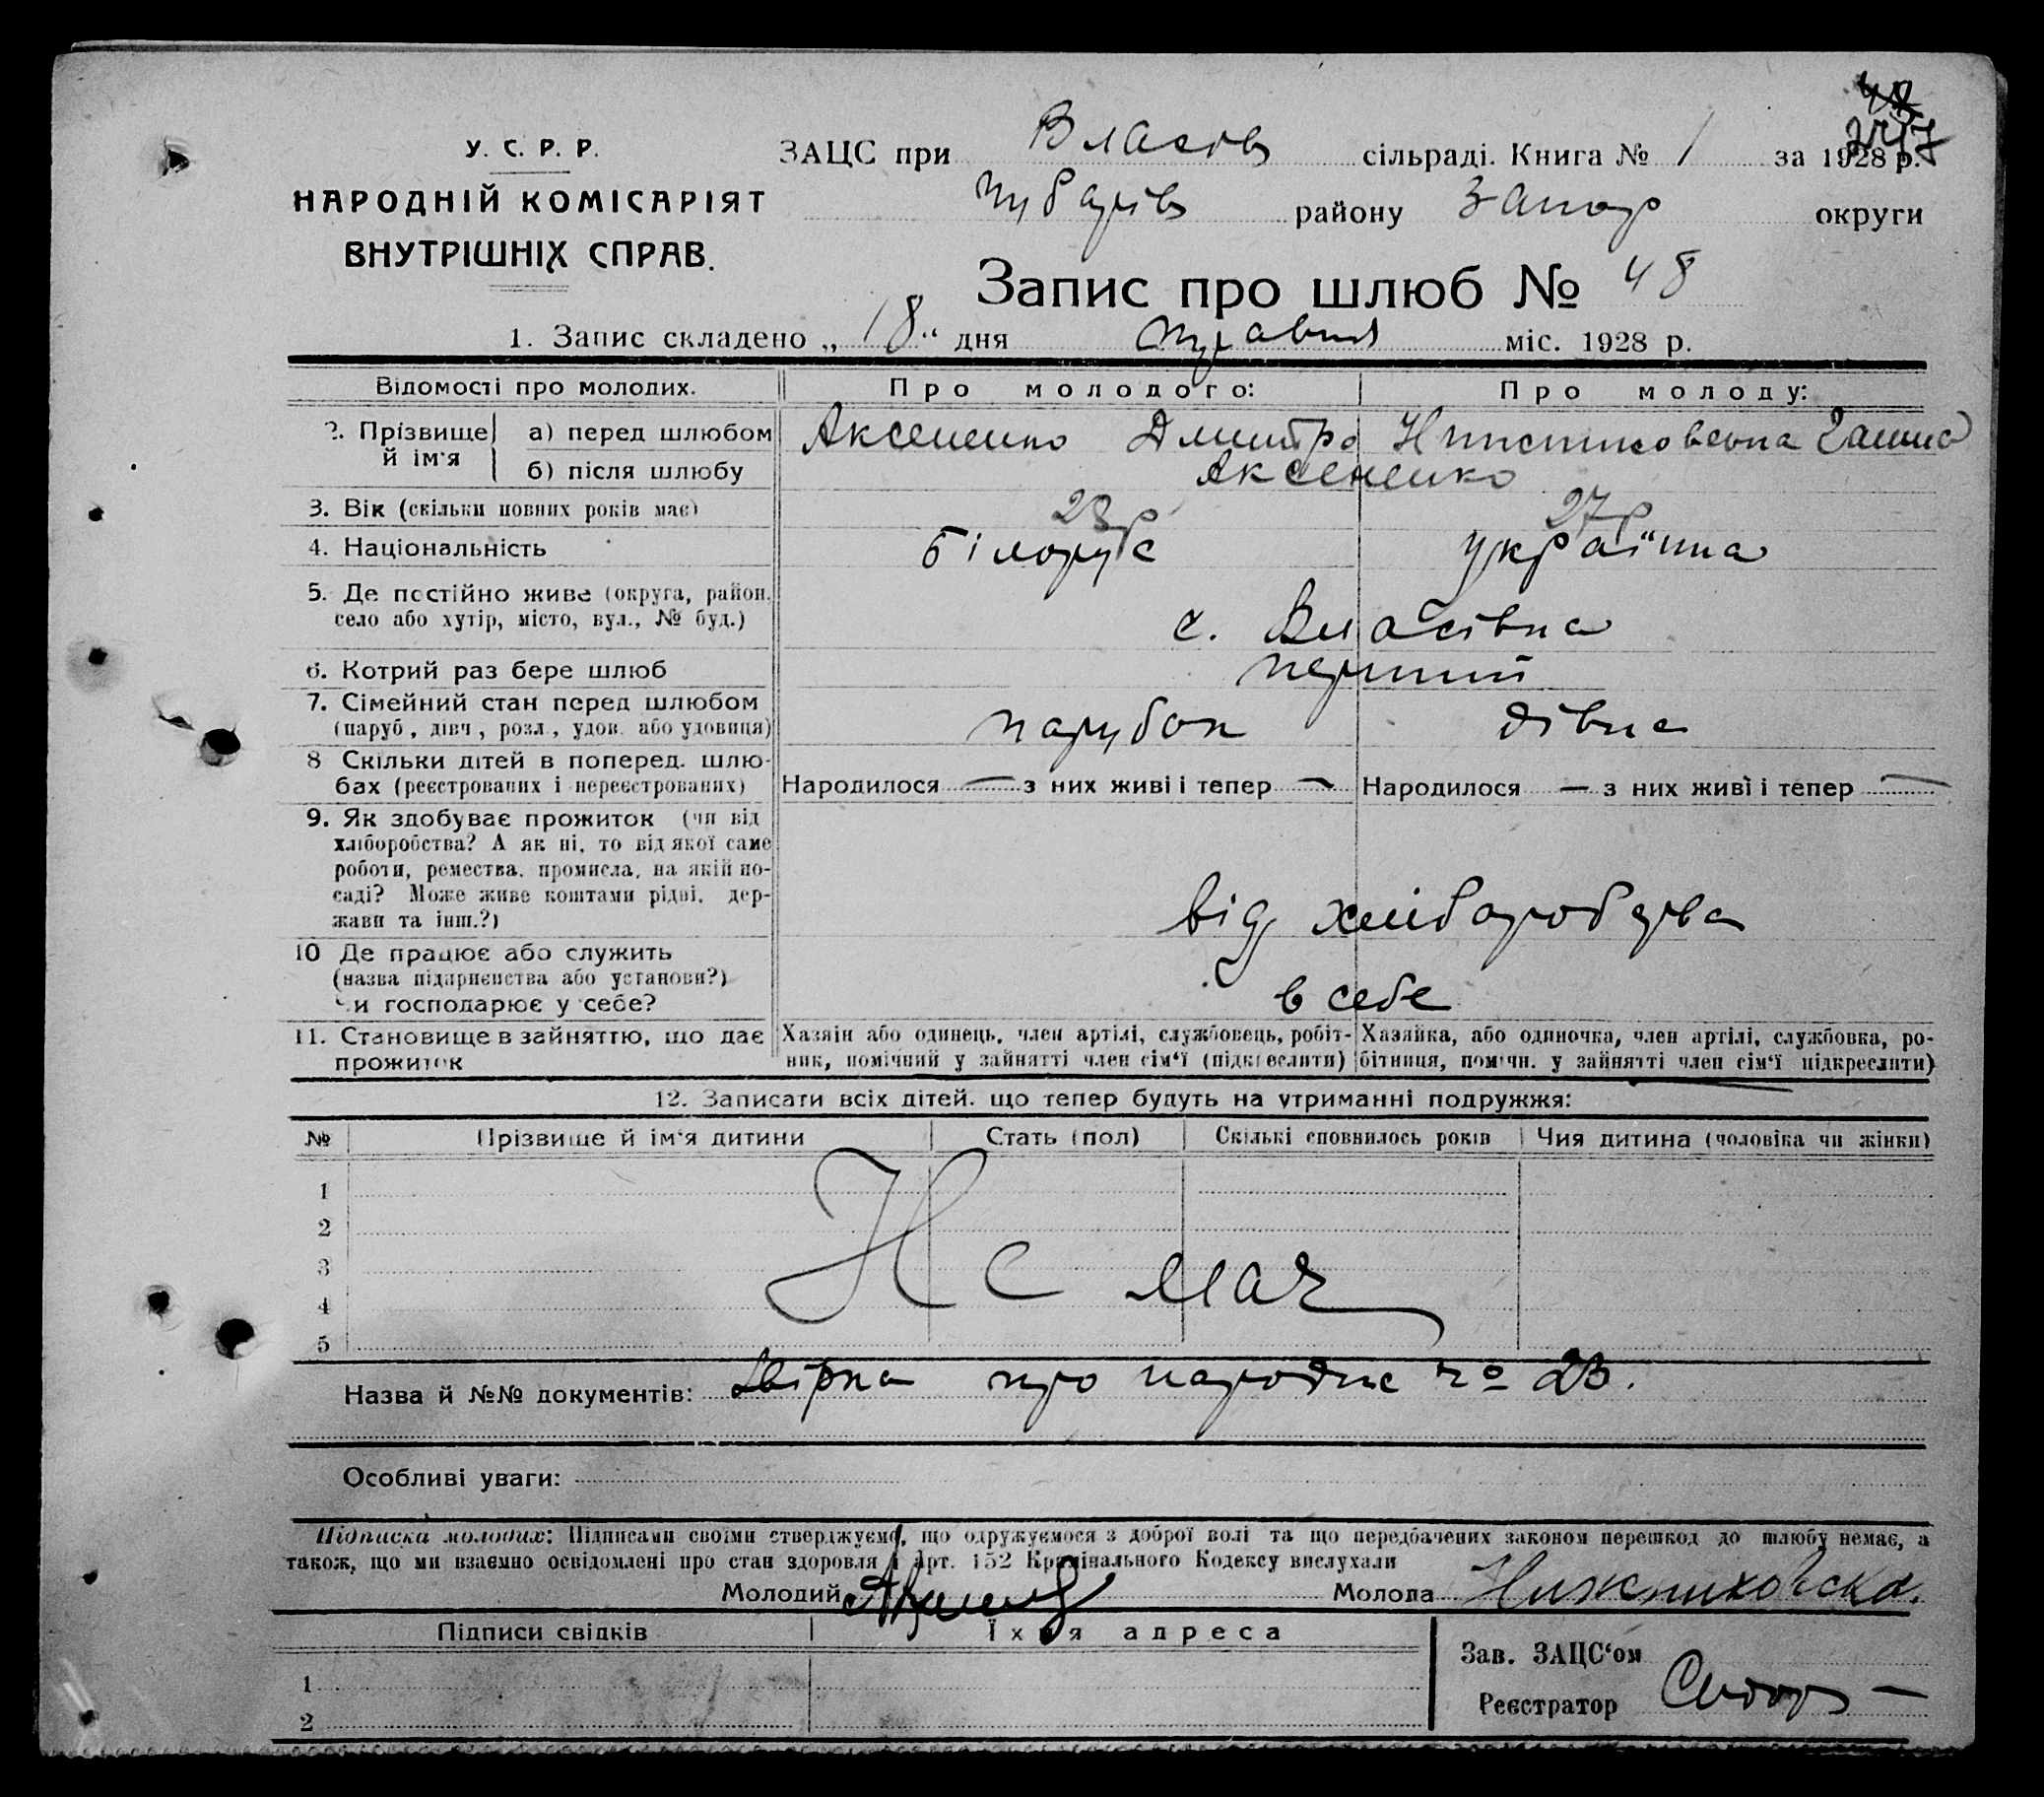 У. С. Р. Р.
НАРОДНІЙ КОМІСАРІЯТ
ВНУТРІШНІХ СПРАВ.
ЗАЦС при Власів сільраді. Книга № 1 за 1928 р.
Чубарів району Запор округи
Запис про шлюб № 48
1. Запис складено „ 18 “ дня травня міс. 1928 р.
Відомості про молодих. Про молодого: Про молоду:
2. Прізвище й ім'я а) перед шлюбом Аксененко Дмитро Ганна
б) після шлюбу Аксененко
3. Вік (скільки повних років має) 23 р 27 р
4. Національність білорус українка
5. Де постійно живе (округа, район,
село або хутір, місто, вул., № буд.) с. Власівка
6. Котрий раз бере шлюб перший
7. Сімейний стан перед шлюбом
(паруб., дівч., розл., удов. або удовиця) парубок дівка
8 Скільки дітей в поперед. шлю-
бах (реєстрованих і нереєстрованих) Народилося — з них живі і тепер — Народилося — з них живі і тепер —
9. Як здобуває прожиток (чи від
хліборобства? А як ні, то від якої саме
роботи, ремества, промисла, на якій по-
саді? Може живе коштами рідні, дер-
жави та інш.?) від хліборобства
10 Де працює або служить
(назва підприєнства або установи?)
Чи господарює у себе? в себе
11. Становище в зайняттю, що дає
прожиток
Хазяїн або одинець, член артілі, службовець, робіт-
ник, помічний у зайнятті член сім'ї (підкреслити)
Хазяйка, або одиночка, член артілі, службовка, ро-
бітниця, помічн. у зайнятті член сім'ї підкреслити)
12. Записати всіх дітей, що тепер будуть на утриманні подружжя:
№ Прізвище й ім'я дитини Стать (пол) Скількі сповнилось років Чия дитина (чоловіка чи жінки)
1
2
3
4
5
Не має
Назва й №№ документів: Звірка про народже № 23.
Особливі уваги:
Підписка молодих: Підписами своїми стверджуємо, що одружуємося з доброї волі та що передбачених законом перешкод до шлюбу немає, а
також, що ми взаємно освідомлені про стан здоровля й Арт. 152 Кримінального Кодексу вислухали
Молодий Молода Нижниковска.
Підписи свідків Їхня адреса
1
2
Зав. ЗАЦС'ом
Реєстратор